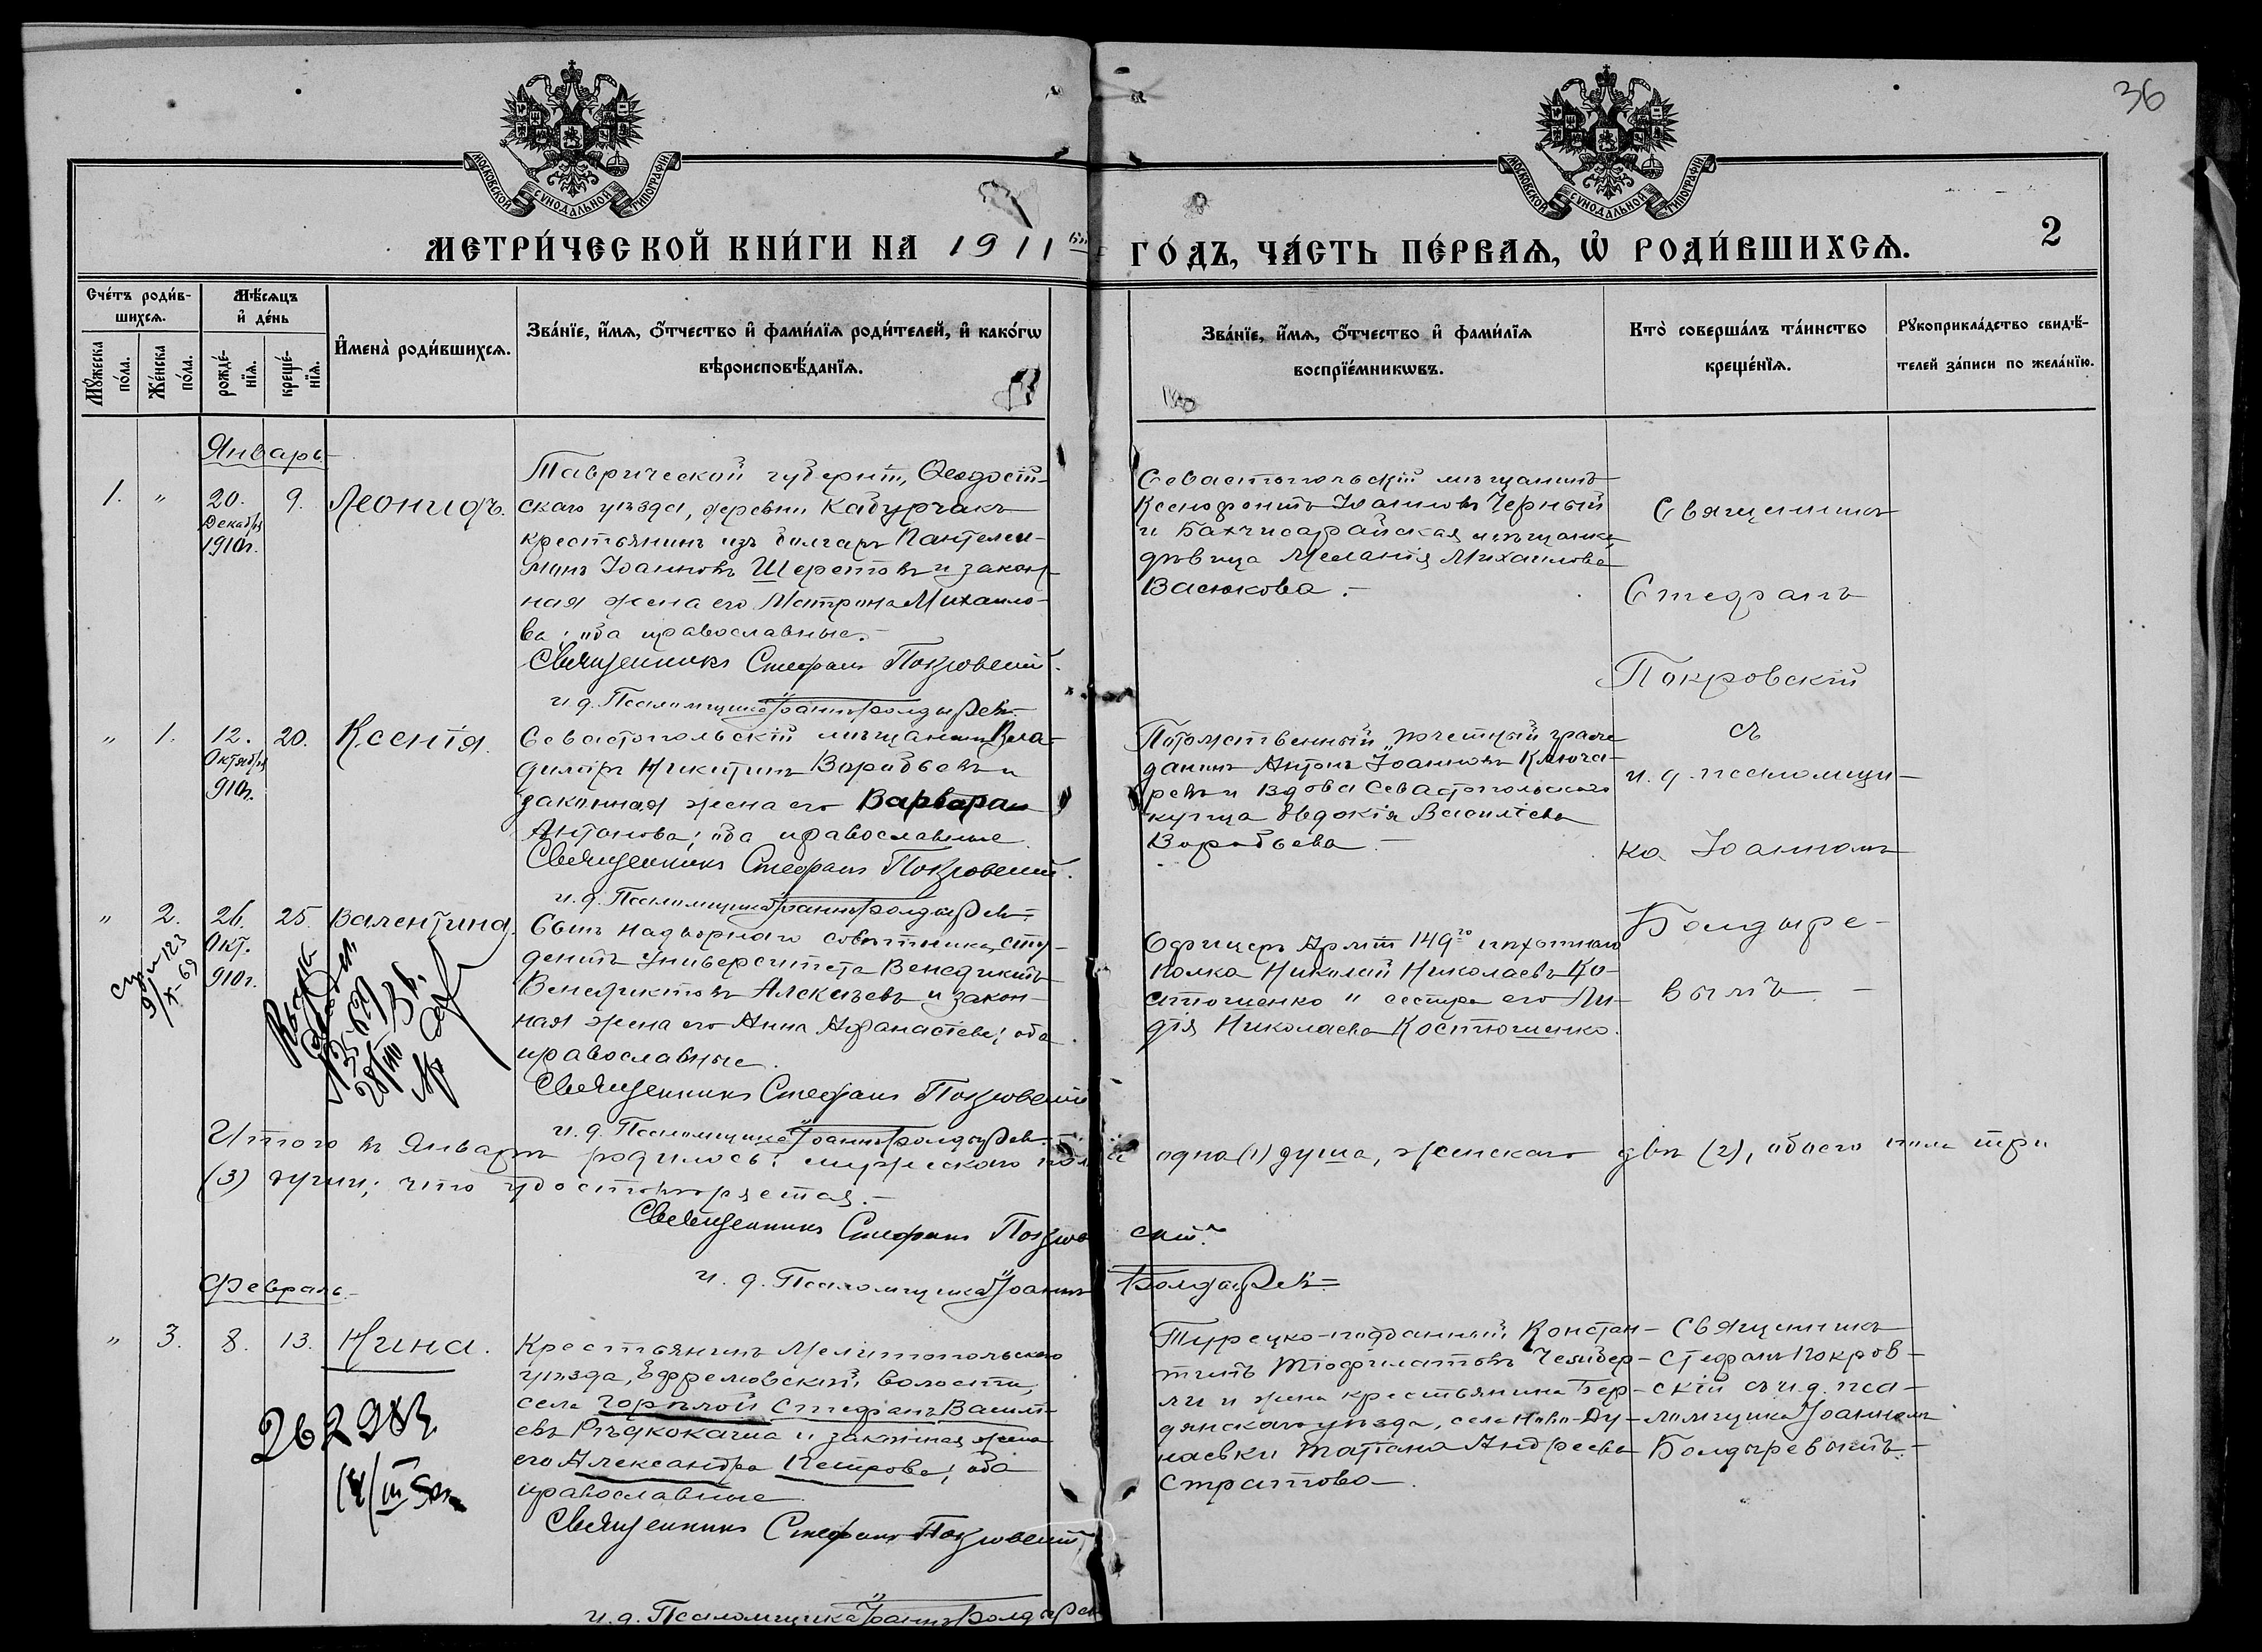 36
МОСКОВСКОЙ СѴНОДАЛЬНОЙ ТИПОГРАФІИ
МОСКОВСКОЙ СѴНОДАЛЬНОЙ ТИПОГРАФІИ
МЕТРИ́ЧЕСКОЙ КНИ́ГИ НА 1911 ГО́ДЪ, ЧА́СТЬ ПЕ́РВАѦ, Ѡ҆ РОДИ́ВШИХСѦ.
2
Сче́тъ роди́в-
шихсѧ.
Мѣ́сѧцъ
и҆ де́нь
Мꙋ́жеска по́ла.
Же́нска по́ла.
рожде́-нїѧ.
креще́-нїѧ.
И҆мена̀ роди́вшихсѧ.
Зва́нїе, и҆́мѧ, ѻ҆́тчество и҆ фами́лїѧ роди́телей, и҆ како́гѡ
вѣроисповѣ́данїѧ.
Зва́нїе, и҆́мѧ, ѻ҆́тчество и҆ фами́лїѧ
воспрїе́мникѡвъ.
Кто̀ соверша́лъ та́инство
креще́нїѧ.
Рꙋкоприкла́дство свидѣ́-
телей за́писи по жела́нїю.
Январь
1. " 20. Декабря 1910г. 9. Леонидъ.
Таврической губерніи, Ѳеодосій-
скаго уѣзда, деревни Кабурчакъ
крестьянинъ изъ болгаръ Пантелеи-
монъ Іоанновъ Шеретовъ и закон-
ная жена его Матрона Михаило-
ва; оба православные.
Священникъ Стефанъ Покровскій.
и. д. Псаломщика Іоаннъ Болдыревъ.
Севастопольскій мѣщанинъ
Ксенофонтъ Іоанновъ Черный
и Бахчисарайская мѣщанка,
дѣвица Меланія Михаилова
Васюкова.
Священникъ
Стефанъ
Покровскій
съ
и. д. псаломщи-
ка Іоанномъ
Болдыре-
вымъ.
" 1. 12. Октября 910г. 20. Ксенія.
Севастопольскій мѣщанинъ Вла-
диміръ Никитинъ Воробьевъ и
законная жена его Варвара
Антонова; оба православные.
Священникъ Стефанъ Покровскій.
и. д. Псаломщика Іоаннъ Болдыревъ.
Потомственный почетный граж-
данинъ Антонъ Іоанновъ Ключа-
ревъ и вдова Севастопольскаго
купца Евдокія Василіева
Воробьева.
" 2. 26. Окт. 910г. 25. Валентина.
Сынъ надворнаго совѣтника, сту-
дентъ Университета Венедиктъ
Венедиктовъ Алексѣевъ и закон-
ная жена его Анна Аѳанасіева; оба
православные.
Священникъ Стефанъ Покровскій
и. д. Псаломщика Іоаннъ Болдыревъ.
Офицеръ Арміи 149го пѣхотнаго
полка Николай Николаевъ Ко-
стюшенко и сестра его Ли-
дія Николаева Костюшенко.
Итого въ Январѣ родилось: мужескаго пола одна (1) душа, женскаго двѣ (2), обоего пола три
(3) души; что удостовѣряется.
Священникъ Стефанъ Покровскій.
и. д. Псаломщика Іоаннъ Болдыревъ.
Февраль.
" 3. 8. 13. Нина.
262983
Крестьянинъ Мелитопольскаго
уѣзда, Ефремовской волости,
села Горѣлой Стефанъ Василі-
евъ Рѣдкокаша и законная жена
его Александра Петрова; оба
православные.
Священникъ Стефанъ Покровскій
и. д. Псаломщика Іоаннъ Болдыревъ
Турецко-подданный Констан-
тинъ
ли и жена крестьянина Бер-
дянскаго уѣзда, села Ново-Ду-
наевки Татіана Андреева
Стратова.
Священникъ
Стефанъ Покров-
скій съ и. д. пса-
ломщика Іоанномъ
Болдыревымъ.